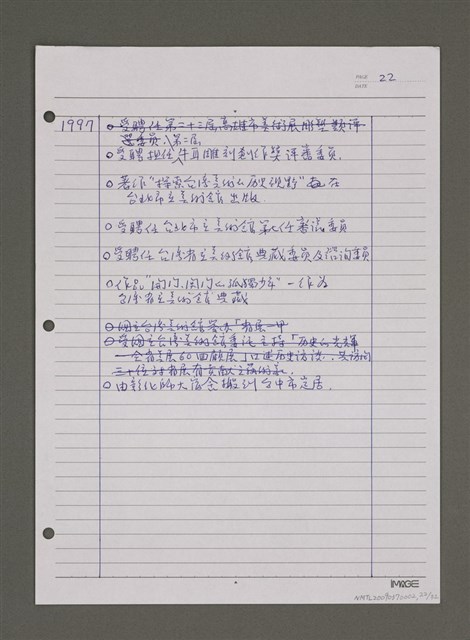 PAGE 22
DATE
1997
○受聘任第二十三屆高雄市美術展雕塑類評
選委員
○受聘担任第二屆牛耳雕刻創作獎評審委員.
○著作"探索台灣美術的歷史視野"由 在
台北市立美術館出版.
○受聘任台北市立美術館第八任審議委員
○受聘任台灣省立美術館典藏委員及諮詢委員
○作品"閉門、開門的孤獨少年"一作為
台灣省立美術館典藏
○國立台灣美術館 「省展一甲
○受國立台灣美術館委託主持「歷史的光輝
—全省美展60回顧展」口述歷史訪談,共訪問
三十位對省展有貢獻之藝術家.
○由彰化師大宿舍搬到台中市定居.
IMAGE
22/32